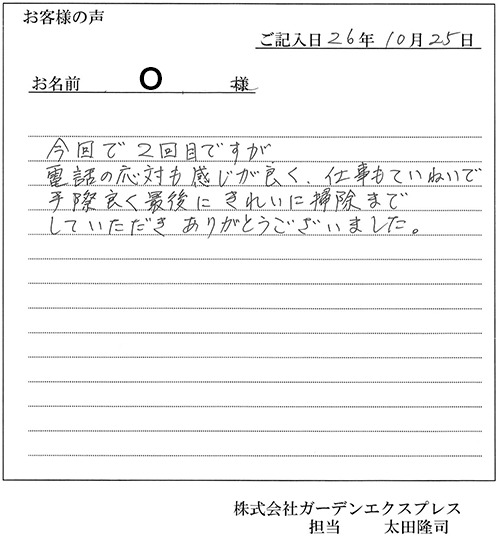 お客様の声
ご記入日 26年 10月 25日
お名前 O 様
今回で2回目ですが
電話の応対も感じが良く、仕事もていねいで
手際良く最後にきれいに掃除まで
していただきありがとうございました。
株式会社ガーデンエクスプレス
担当 太田隆司